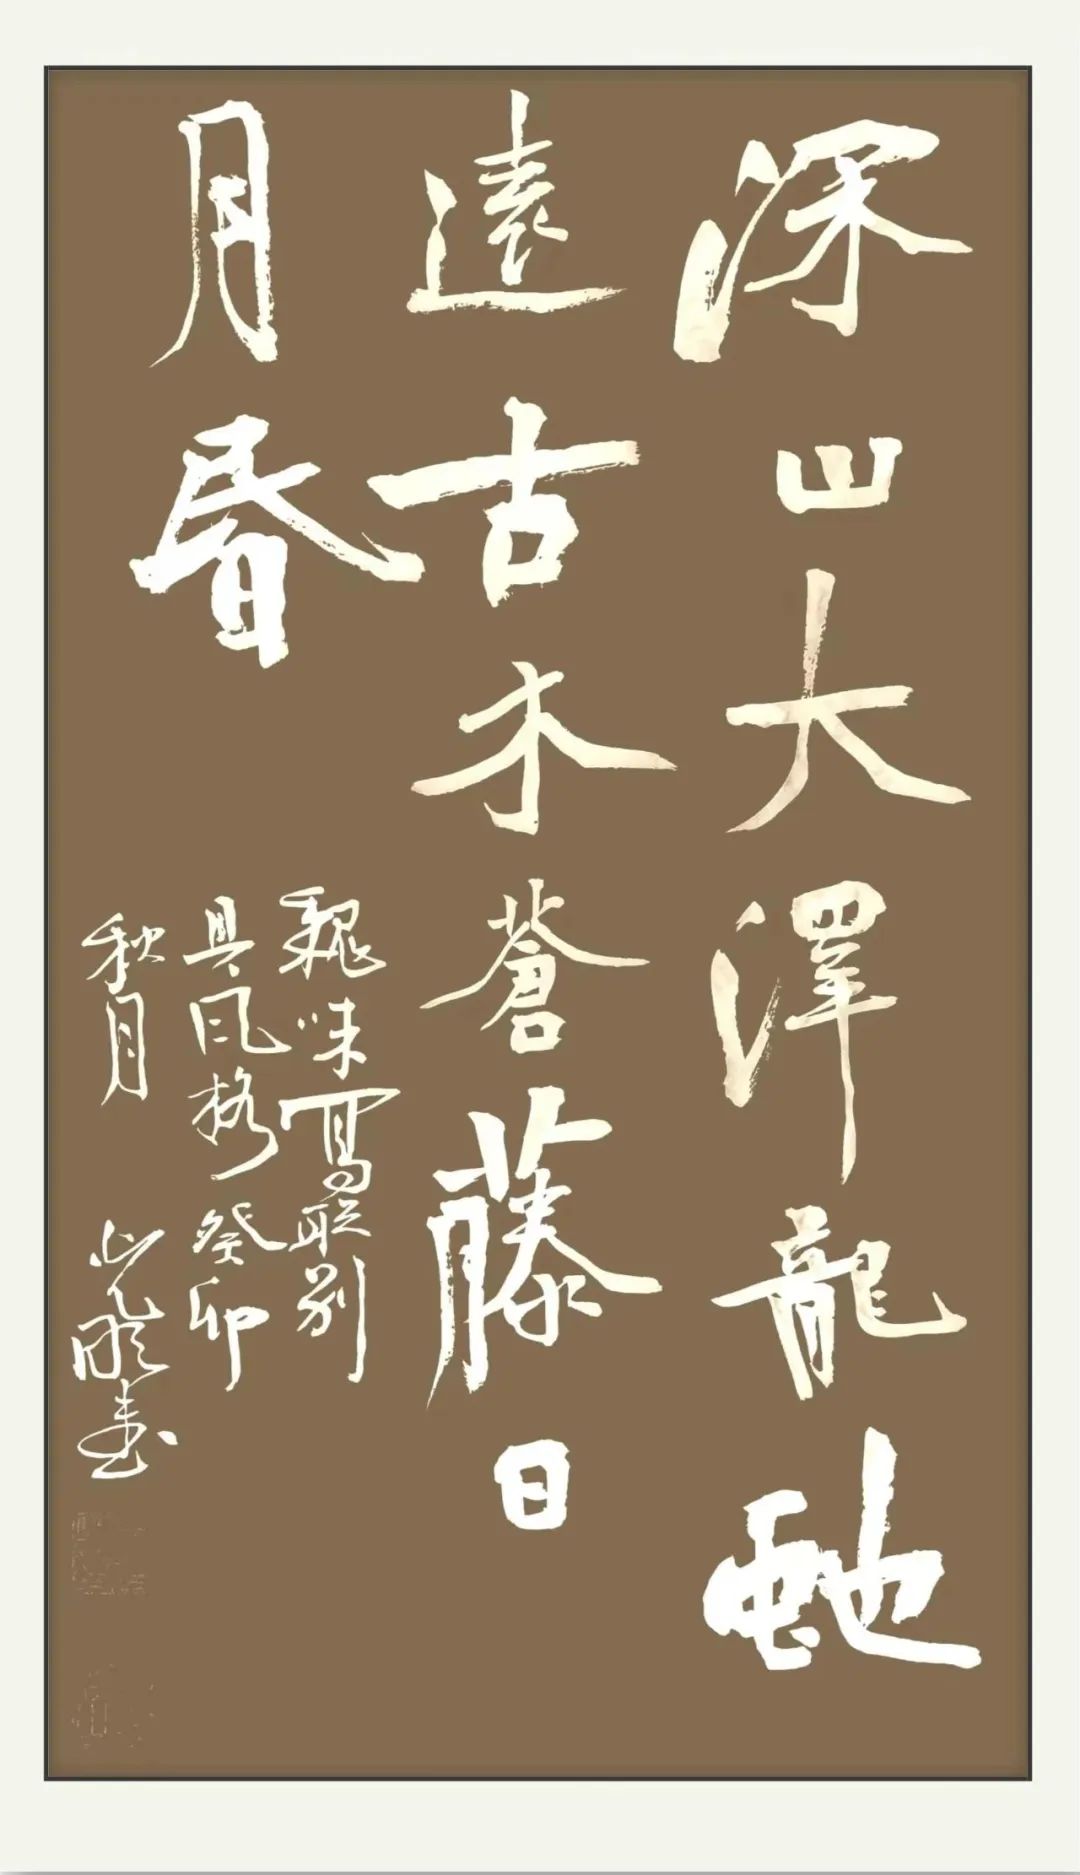 深山大澤龍蛇
遠古木蒼藤日
月昏
魏味寫联别
具风格癸卯
秋月
书